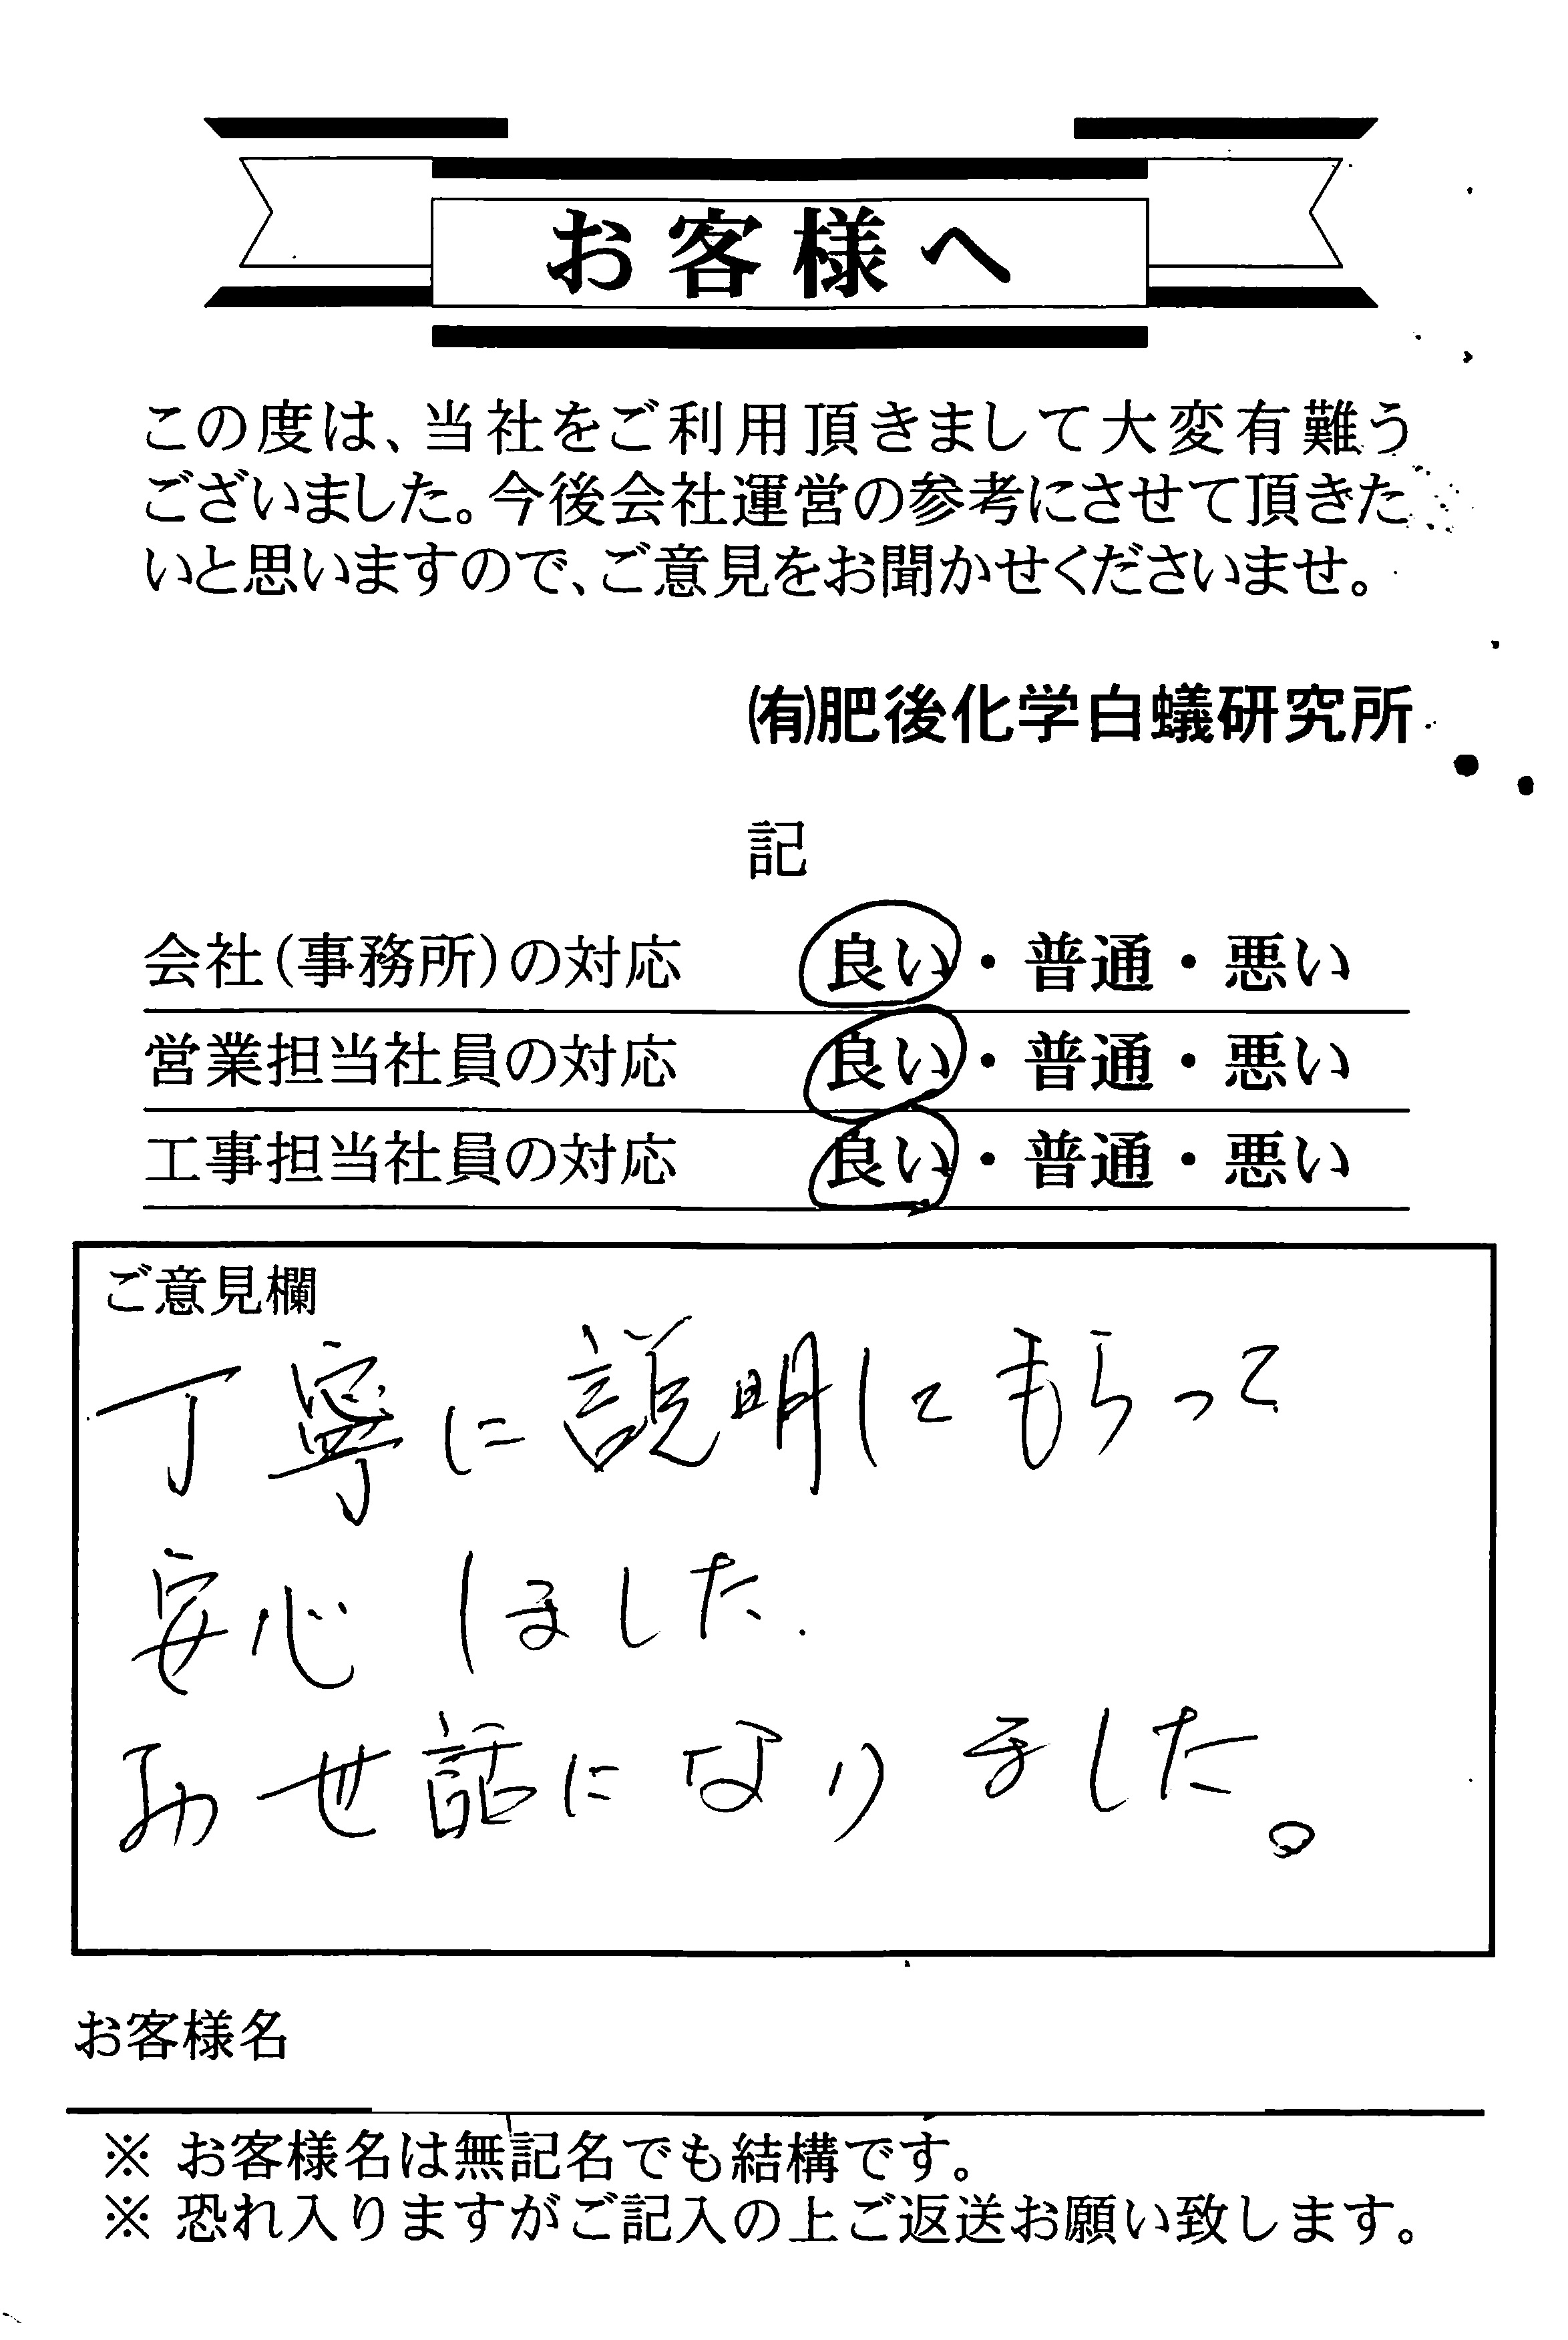 お客様へ
この度は、当社をご利用頂きまして大変有難う
ございました。今後会社運営の参考にさせて頂きた
いと思いますので、ご意見をお聞かせくださいませ。
㈲肥後化学白蟻研究所
記
会社(事務所)の対応 良い・普通・悪い
営業担当社員の対応 良い・普通・悪い
工事担当社員の対応 良い・普通・悪い
ご意見欄
丁寧に説明してもらって
安心しました.
お世話になりました。
お客様名
※ お客様名は無記名でも結構です。
※ 恐れ入りますがご記入の上ご返送お願い致します。